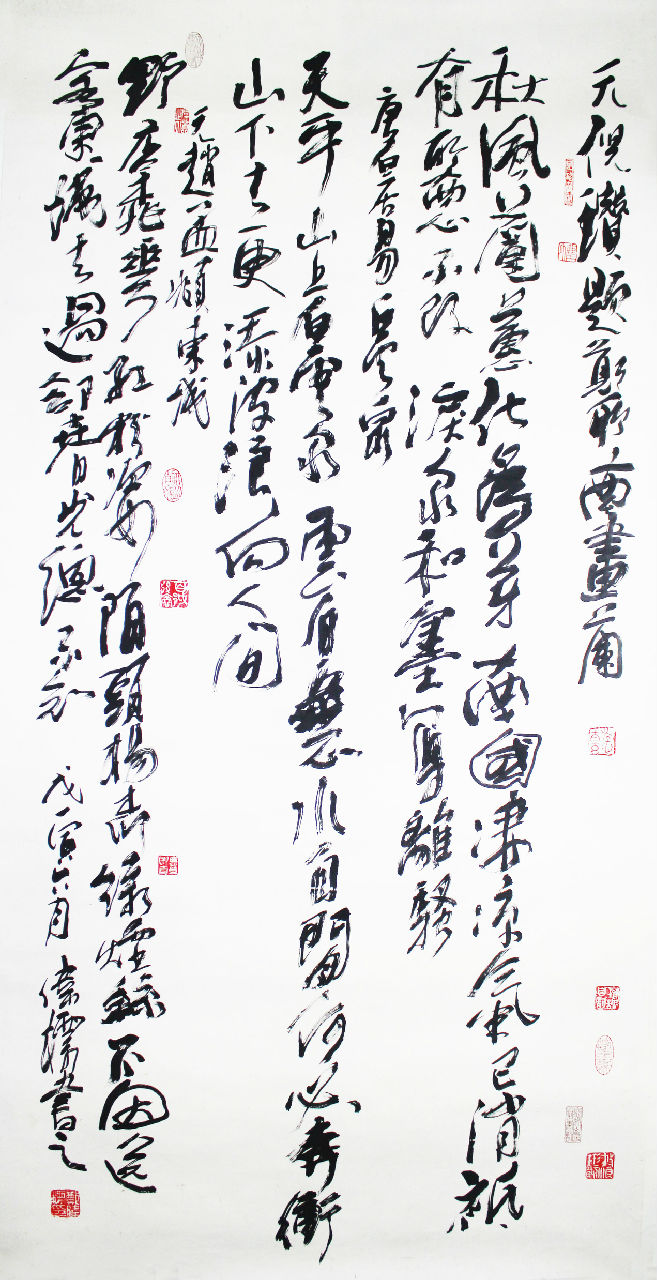 元倪瓚題鄭所南畫蘭
秋風蘭蕙化為茅南國凄涼氣已消祇
有所南心不改淚泉和墨寫離騷
唐白居易白雲泉
天平山上白雲泉雲自無心水自閒何必奔衝
山下去更添波浪向人間
元趙孟頫東城
野店桃華紅粉姿陌頭楊柳綠煙絲不因送
客東城去過卻春光總不知戊寅六月書之